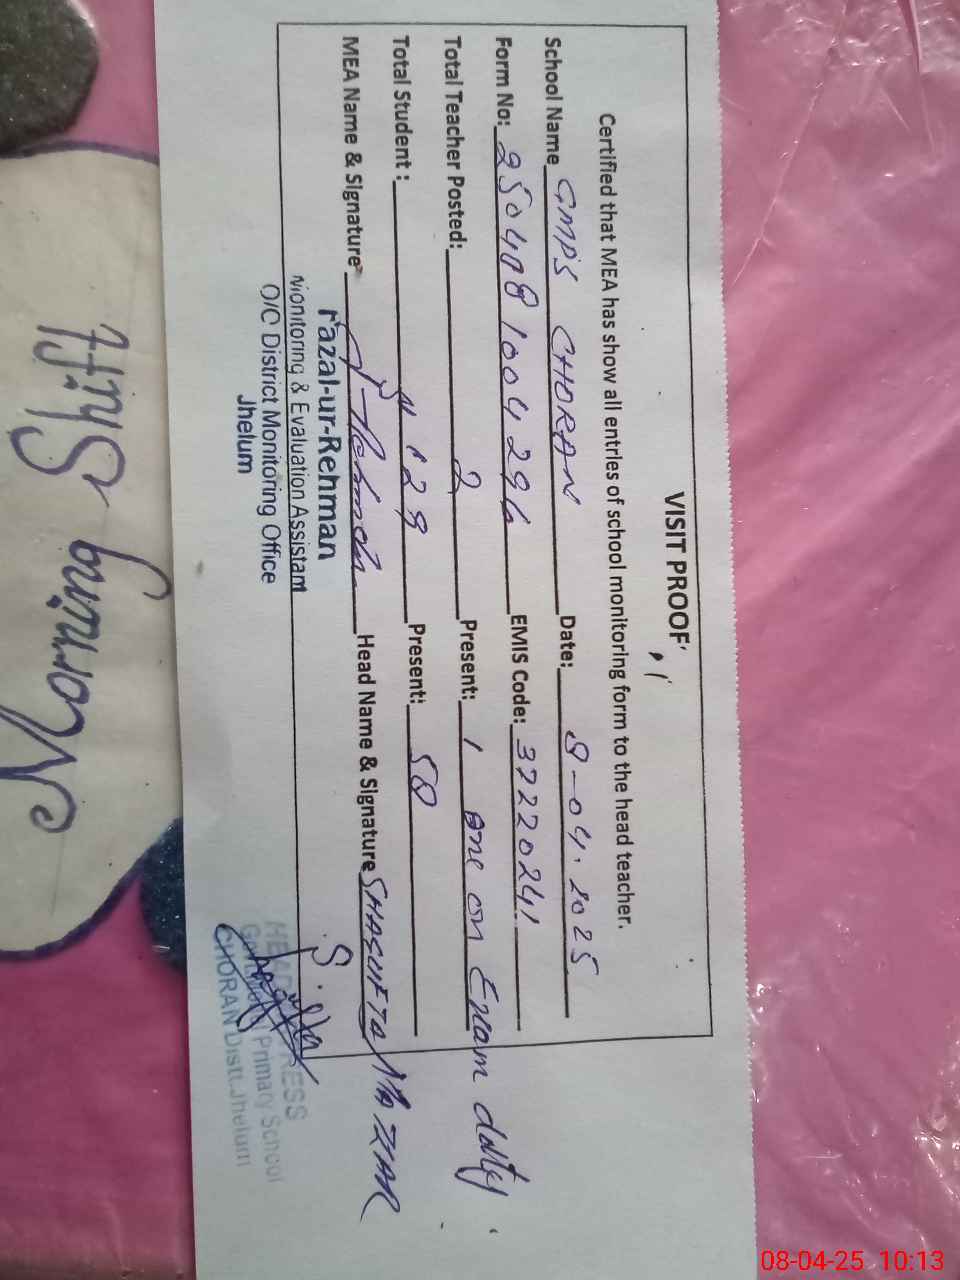 VISIT PROOF
Certified that MEA has show all entries of school monitoring form to the head teacher.
School Name GMPS CHORAN Date: 8-04.2025
Form No: 250408 1004296 EMIS Code: 37220241
Total Teacher Posted: 2 Present: 1 one on Exam duty
Total Student: 129 Present: 58
MEA Name & Signature Head Name & Signature SHAGUFTA MAZAR
Fazal-ur-Rehman
Monitoring & Evaluation Assistant
O/C District Monitoring Office
Jhelum
HEADMISTRESS
Primary School
CHORAN Distt. Jhelum
Morning Shift
08-04-25 10:13